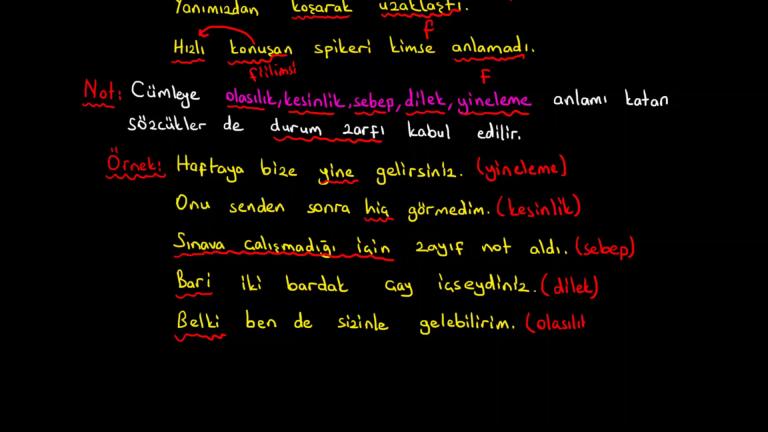 Yanımızdan koşarak uzaklaştı.
f
Hızlı konuşan spikeri kimse anlamadı.
fiilimsi f
Not: Cümleye olasılık, kesinlik, sebep, dilek, yineleme anlamı katan
sözcükler de durum zarfı kabul edilir.
Örnek: Haftaya bize yine gelirsiniz. (yineleme)
Onu senden sonra hiç görmedim. (kesinlik)
Sınava çalışmadığı için zayıf not aldı. (sebep)
Bari iki bardak çay içseydiniz. (dilek)
Belki ben de sizinle gelebilirim. (olasılı